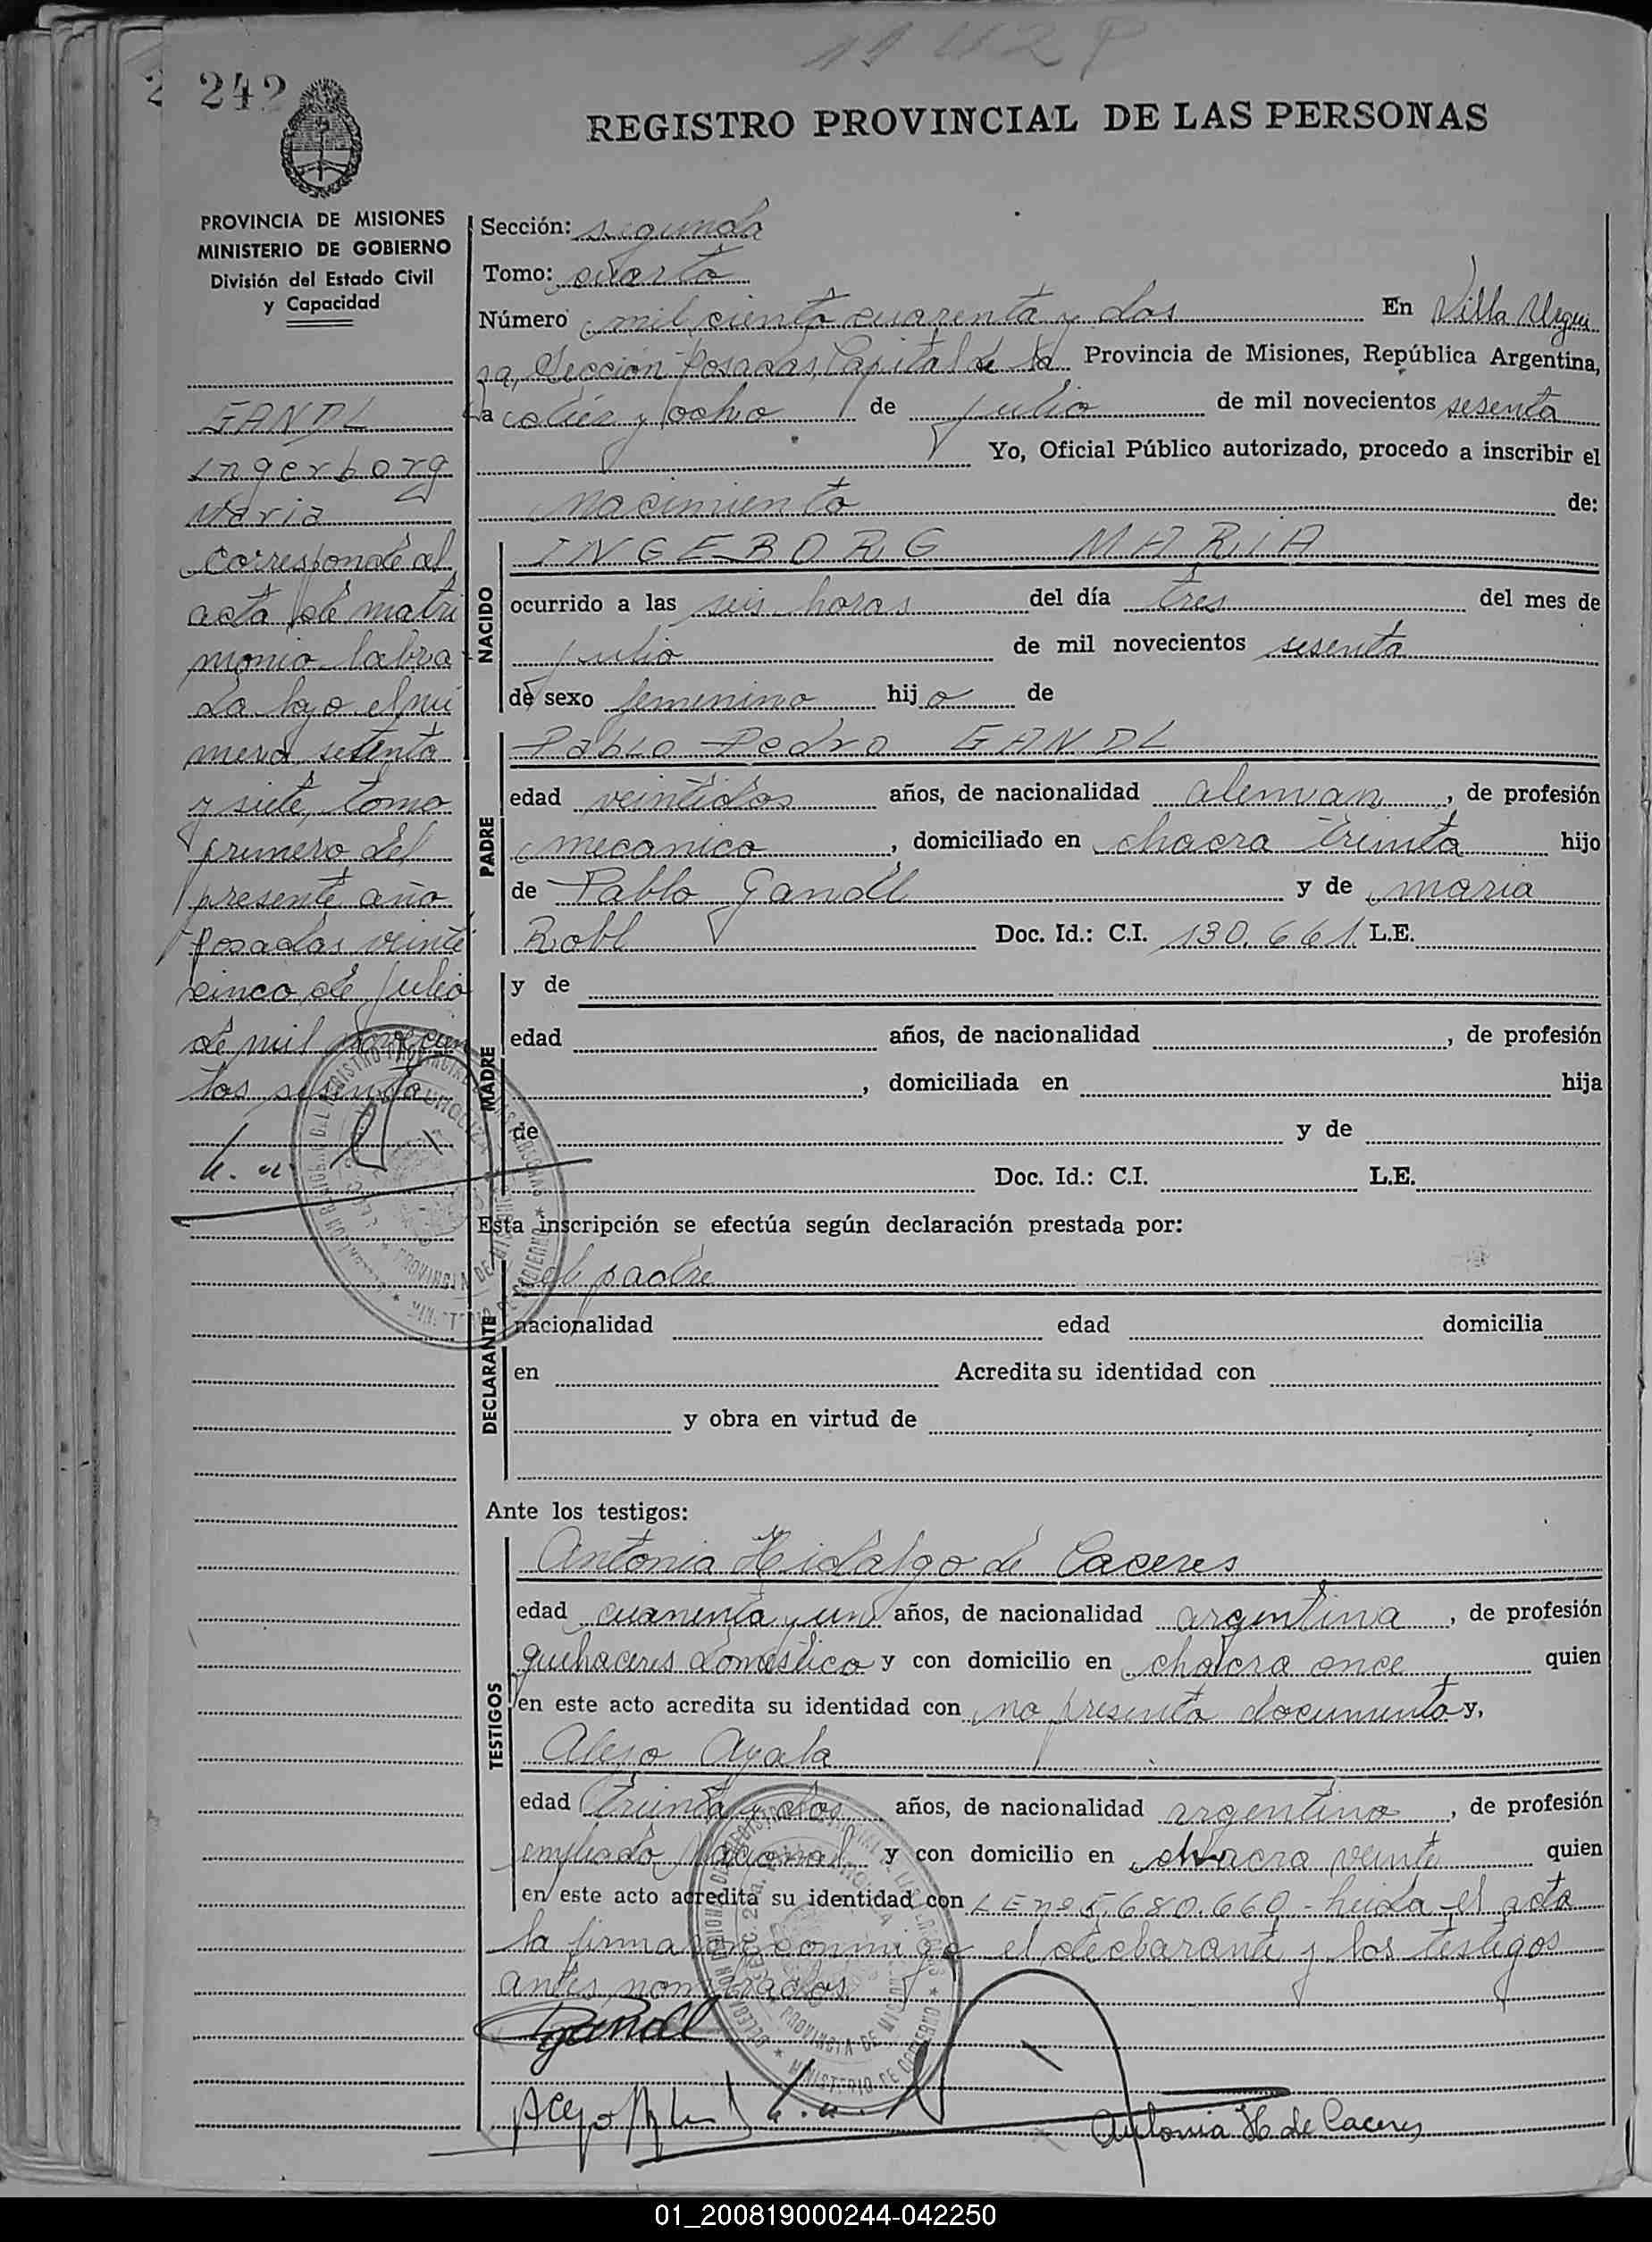 242
REGISTRO PROVINCIAL DE LAS PERSONAS
PROVINCIA DE MISIONES
MINISTERIO DE GOBIERNO
División del Estado Civil
y Capacidad
GANDL
Ingerborg
Maria
Corresponde al
acta de matri
monio labra
da bajo el nú
mero setenta
y siete, tomo
primero del
presente año
Posadas veinte
cinco de julio
de mil novecien
tos sesenta
Sección: segunda
Tomo: cuarto
Número mil ciento cuarenta y dos En Villa Urqui
za, Sección Posadas, Capital de la Provincia de Misiones, República Argentina,
a diez y ocho de julio de mil novecientos sesenta
Yo, Oficial Público autorizado, procedo a inscribir el
nacimiento de:
NACIDO
INGEBORG MARIA
ocurrido a las seis horas del día tres del mes de
julio de mil novecientos sesenta
de sexo femenino hija de
PADRE
Pablo Pedro GANDL
edad veintidos años, de nacionalidad aleman, de profesión
mecanico, domiciliado en chacra treinta hijo
de Pablo Gandl y de maria
Robl Doc. Id.: C.I. 130.661 L.E.
MADRE
y de
edad años, de nacionalidad , de profesión
, domiciliada en hija
de y de
Doc. Id.: C.I. L.E.
Esta inscripción se efectúa según declaración prestada por:
DECLARANTE
el padre
nacionalidad edad domicilia
en Acredita su identidad con
y obra en virtud de
Ante los testigos:
TESTIGOS
Antonia Hidalgo de Caceres
edad cuarenta y un años, de nacionalidad argentina, de profesión
quehaceres domestico y con domicilio en chacra once quien
en este acto acredita su identidad con no presenta documento y,
Alejo Ayala
edad treinta y dos años, de nacionalidad argentino, de profesión
empleado Nacional y con domicilio en chacra veinte quien
en este acto acredita su identidad con L E nº 5.680.660 - leida el acta
la firmaron conmigo el declarante y los testigos
antes nombrados
PGandl
Antonia H de Caceres
01_200819000244-042250